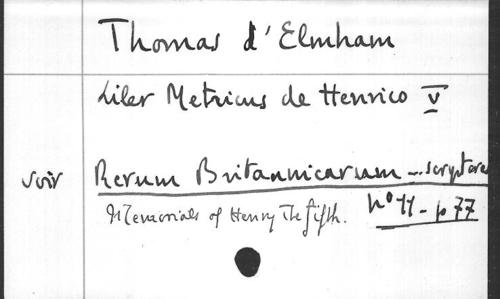 Thomas d'Elmham
Liber Metricus de Henrico V
voir Rerum Britannicarum - scriptores
Memorials of Henry the fifth. n° 11 - p 77